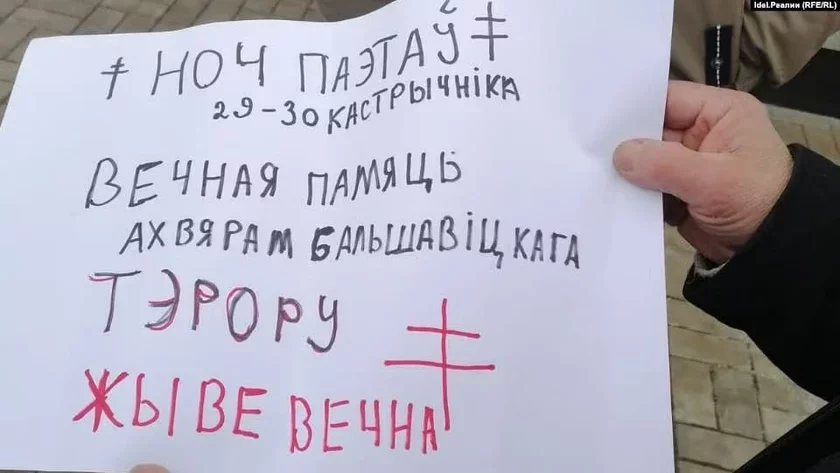 Idel.Реалии (RFE/RL)
‡ НОЧ ПАЭТАЎ ‡
29-30 КАСТРЫЧНІКА
ВЕЧНАЯ ПАМЯЦЬ
АХВЯРАМ БАЛЬШАВІЦКАГА
ТЭРОРУ
ЖЫВЕ ВЕЧНА